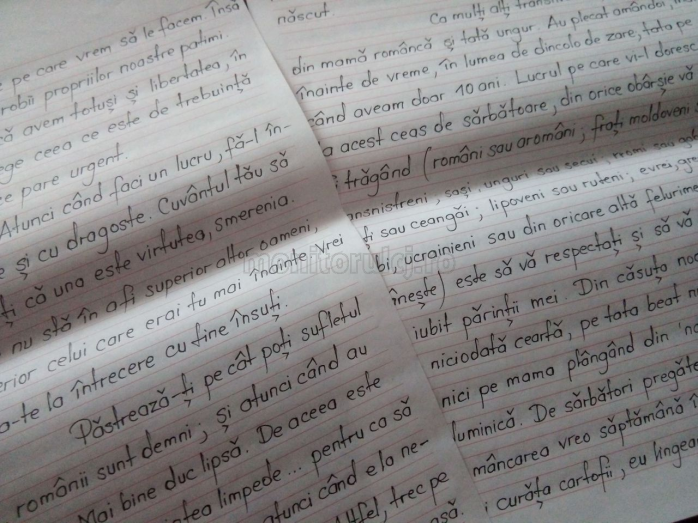 e pe care vrem să le facem. Însă
robii propriilor noastre patimi.
că avem totuși și libertatea, în
ege ceea ce este de trebuință
ce pare urgent.
Atunci când faci un lucru, fă-l în-
e și cu dragoste. Cuvântul tău să
ți că una este virtutea, smerenia.
nu stă în a fi superior altor oameni,
erior celui care erai tu mai înainte. Vrei
a-te la întrecere cu tine însuți.
Păstrează-ți pe cât poți sufletul
românii sunt demni; și atunci când au
Mai bine duc lipsă. De aceea este
ntea limpede... pentru ca să
atunci când e la ne-
Altfel, trec pe
născut.
Ca mulți alți
din mamă româncă și tată ungur. Au plecat amândoi,
înainte de vreme, în lumea de dincolo de zare, tata pe
când aveam doar 10 ani. Lucrul pe care vi-l doresc
a acest ceas de sărbătoare, din orice obârșie vă
trăgând (români sau aromâni; frați moldoveni
ansnistreni, sași, unguri sau secui,
ți sau ceangăi; lipoveni sau ruteni; evrei,
bi, ucrainieni sau din oricare altă
înește) este să vă respectați și să vă
iubit părinții mei. Din căsuța
niciodată ceartă, pe tata beat
nici pe mama plângând din
luminică. De sărbători
mâncarea vreo săptămână
i curăța cartofii, eu
monitorulcj.ro